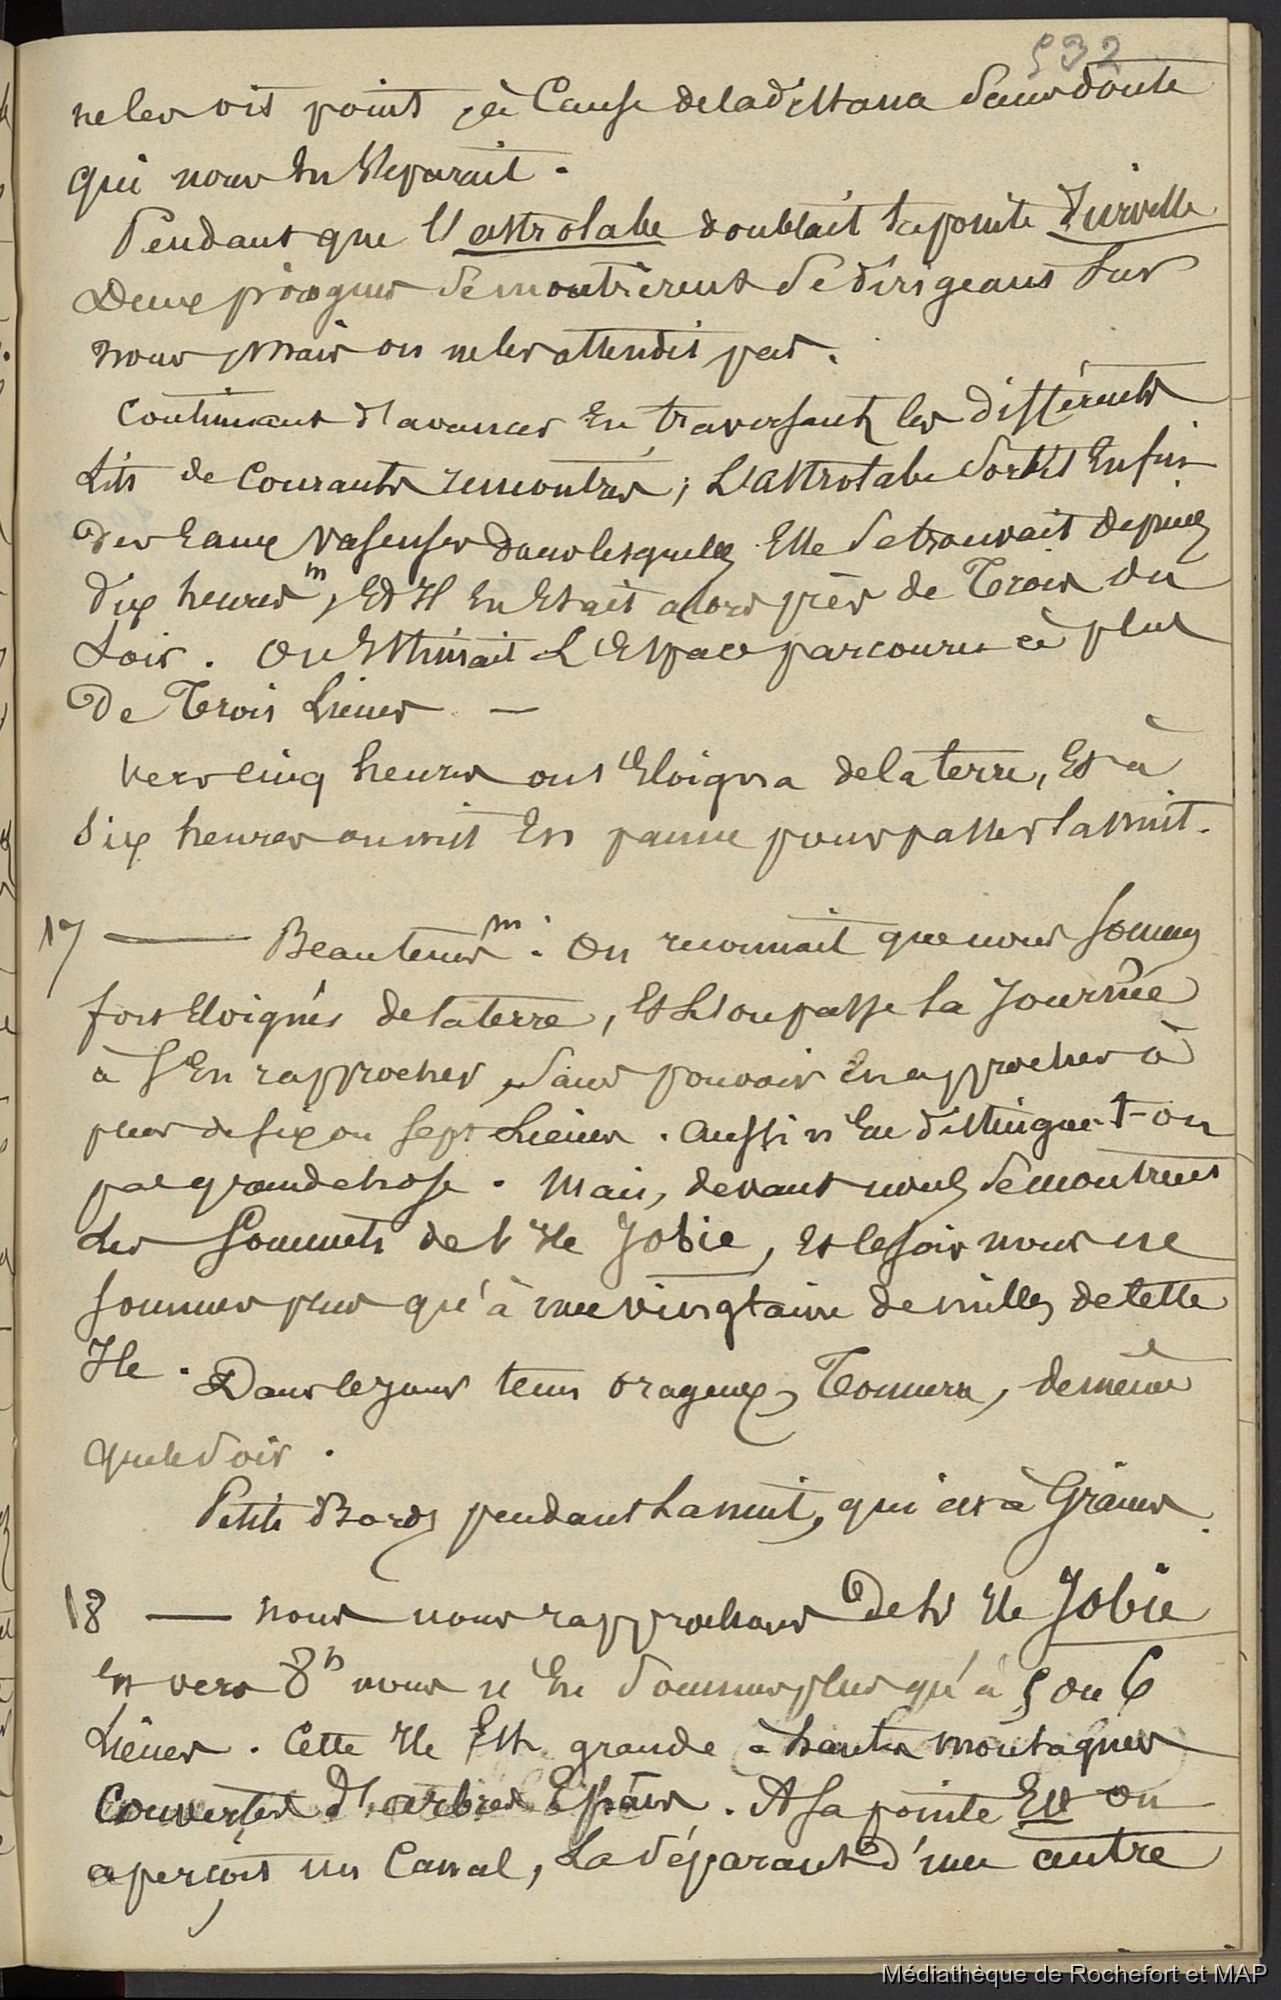 532
ne les vit point, à Cause de la distance Sans doute
qui nous en séparait.
Pendant que l'astrolabe doublait la pointe Durville
Deux pirogues Se montrèrent Se dirigeant Sur
nous, mais on ne les attendit pas.
Continuant d'avancer En traversant les différents
Lits de Courants rencontrés; L'astrolabe Sortit Enfin
des Eaux vaseuses dans lesquelles Elle Se trouvait depuis
dix heures m, Et Il En Etait alors près de Trois du
Soir. On Estimait L'Espace parcouru à plus
De Trois Lieues —
Vers cinq heures on s'Eloigna de la terre, Et à
Six heures on mit En panne pour passer la nuit.
17 — Beau tems m. On reconnait que nous Sommes
fort Eloignés de la terre, Et L'on passe la Journée
à s'En rapprocher, Sans pouvoir En approcher à
plus de six ou sept Lieues. Aussi n'En distingue-t-on
pas grand chose. Mais, devant nous, Se montrent
Les Sommets de l'Ile Jobie, Et le soir nous ne
sommes plus qu'à une vingtaine de milles de cette
Ile. Dans le jour tems orageux, Tonnerre, de même
que le Soir.
Petits Bords pendant La nuit, qui est à Grains.
18 — nous nous rapprochons De l'Ile Jobie
Et vers 8h nous n'En Sommes plus qu'à 5 ou 6
Lieues. Cette Ile Est grande à hautes montagnes
Couvertes d'arbres Epais. A sa pointe Est on
aperçoit un Canal, La Séparant d'une autre
Médiathèque de Rochefort et MAP